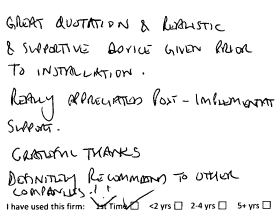 GREAT QUOTATION & REALISTIC
& SUPPORTIVE ADVICE GIVEN PRIOR
TO INSTALLATION.
REALLY APPRECIATED POST-IMPLEMENTAT
SUPPORT.
GRATEFUL THANKS
DEFINITELY RECOMMEND TO OTHER
COMPANIES!!
I have used this firm: 1st Time □ <2 yrs □ 2-4 yrs □ 5+ yrs □